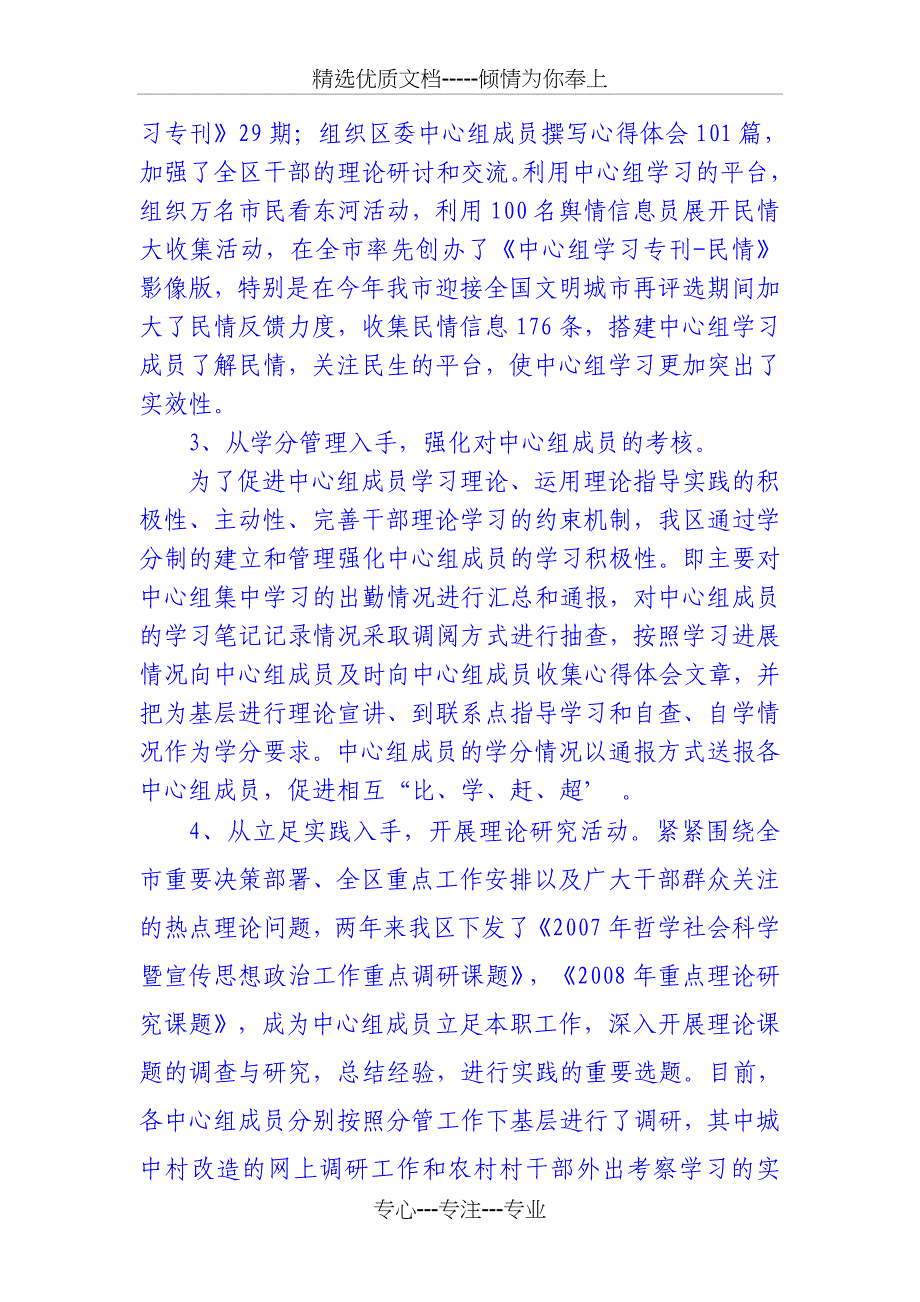 精选优质文档-----倾情为你奉上
习专刊》29期；组织区委中心组成员撰写心得体会101篇，
加强了全区干部的理论研讨和交流。利用中心组学习的平台，
组织万名市民看东河活动，利用100名舆情信息员展开民情
大收集活动，在全市率先创办了《中心组学习专刊-民情》
影像版，特别是在今年我市迎接全国文明城市再评选期间加
大了民情反馈力度，收集民情信息176条，搭建中心组学习
成员了解民情，关注民生的平台，使中心组学习更加突出了
实效性。
3、从学分管理入手，强化对中心组成员的考核。
为了促进中心组成员学习理论、运用理论指导实践的积
极性、主动性、完善干部理论学习的约束机制，我区通过学
分制的建立和管理强化中心组成员的学习积极性。即主要对
中心组集中学习的出勤情况进行汇总和通报，对中心组成员
的学习笔记记录情况采取调阅方式进行抽查，按照学习进展
情况向中心组成员及时向中心组成员收集心得体会文章，并
把为基层进行理论宣讲、到联系点指导学习和自查、自学情
况作为学分要求。中心组成员的学分情况以通报方式送报各
中心组成员，促进相互“比、学、赶、超’ 。
4、从立足实践入手，开展理论研究活动。紧紧围绕全
市重要决策部署、全区重点工作安排以及广大干部群众关注
的热点理论问题，两年来我区下发了《2007年哲学社会科学
暨宣传思想政治工作重点调研课题》，《2008年重点理论研
究课题》，成为中心组成员立足本职工作，深入开展理论课
题的调查与研究，总结经验，进行实践的重要选题。目前，
各中心组成员分别按照分管工作下基层进行了调研，其中城
中村改造的网上调研工作和农村村干部外出考察学习的实
专心---专注---专业